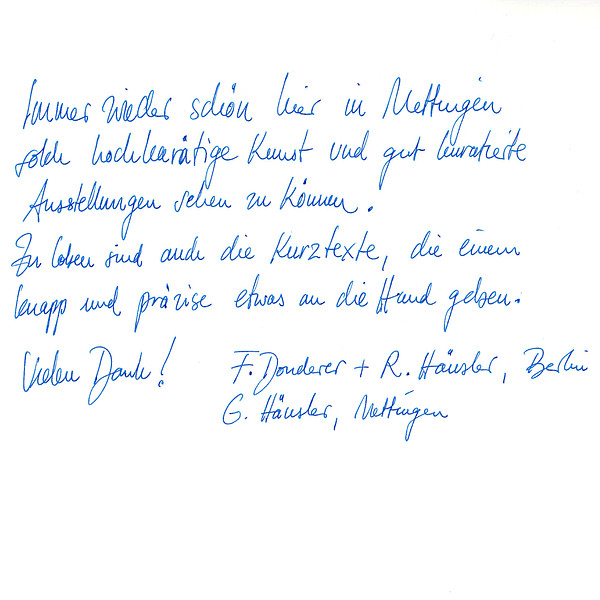 Immer wieder schön hier in Mettingen
solch hochkarätige Kunst und gut kuratierte
Ausstellungen sehen zu können.
Zu loben sind auch die Kurztexte, die einem
knapp und präzise etwas an die Hand geben.
Vielen Dank! F. Donderer + R. Häusler, Berlin
G. Häusler, Mettingen